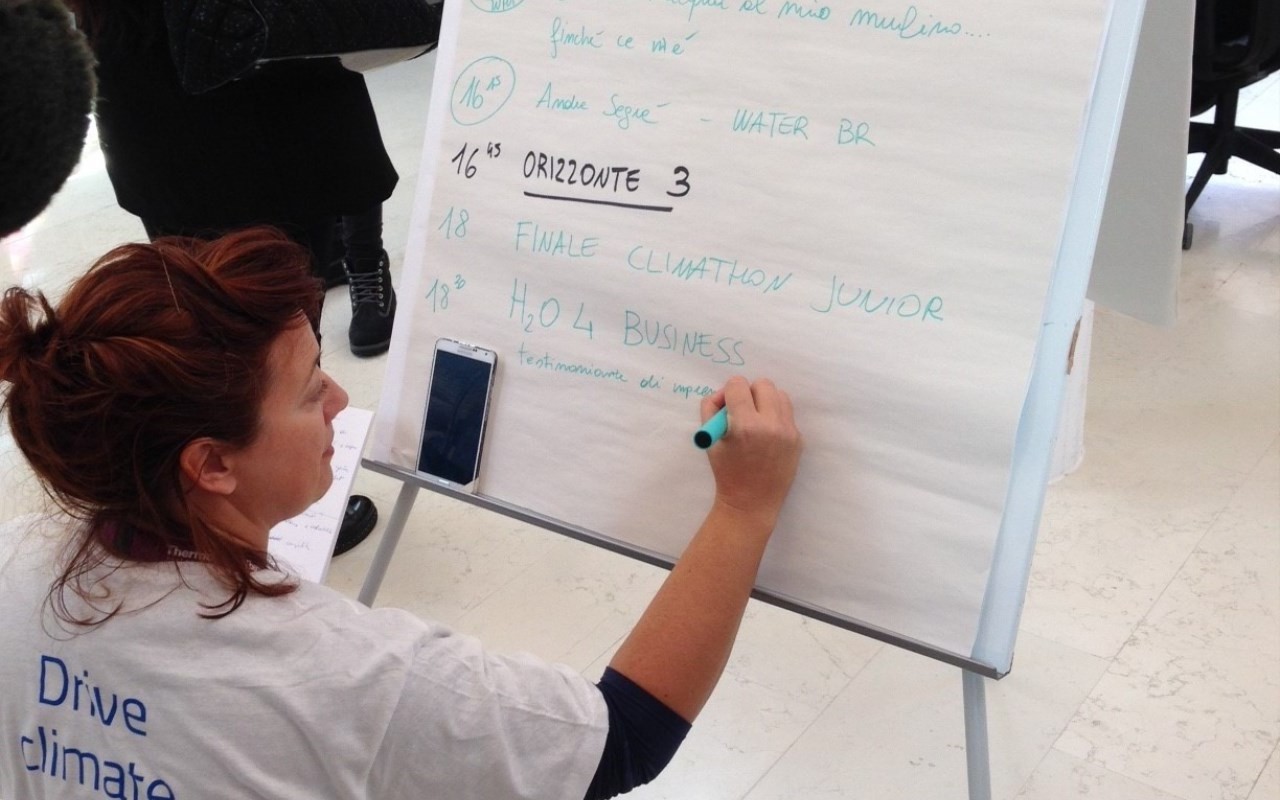 al mio mulino....
finché ce n'é
16 15 Andre Segré - WATER BR
16 45 ORIZZONTE 3
18 FINALE CLIMATHON JUNIOR
18 30 H2O 4 BUSINESS
testimonianze di
Drive
climate